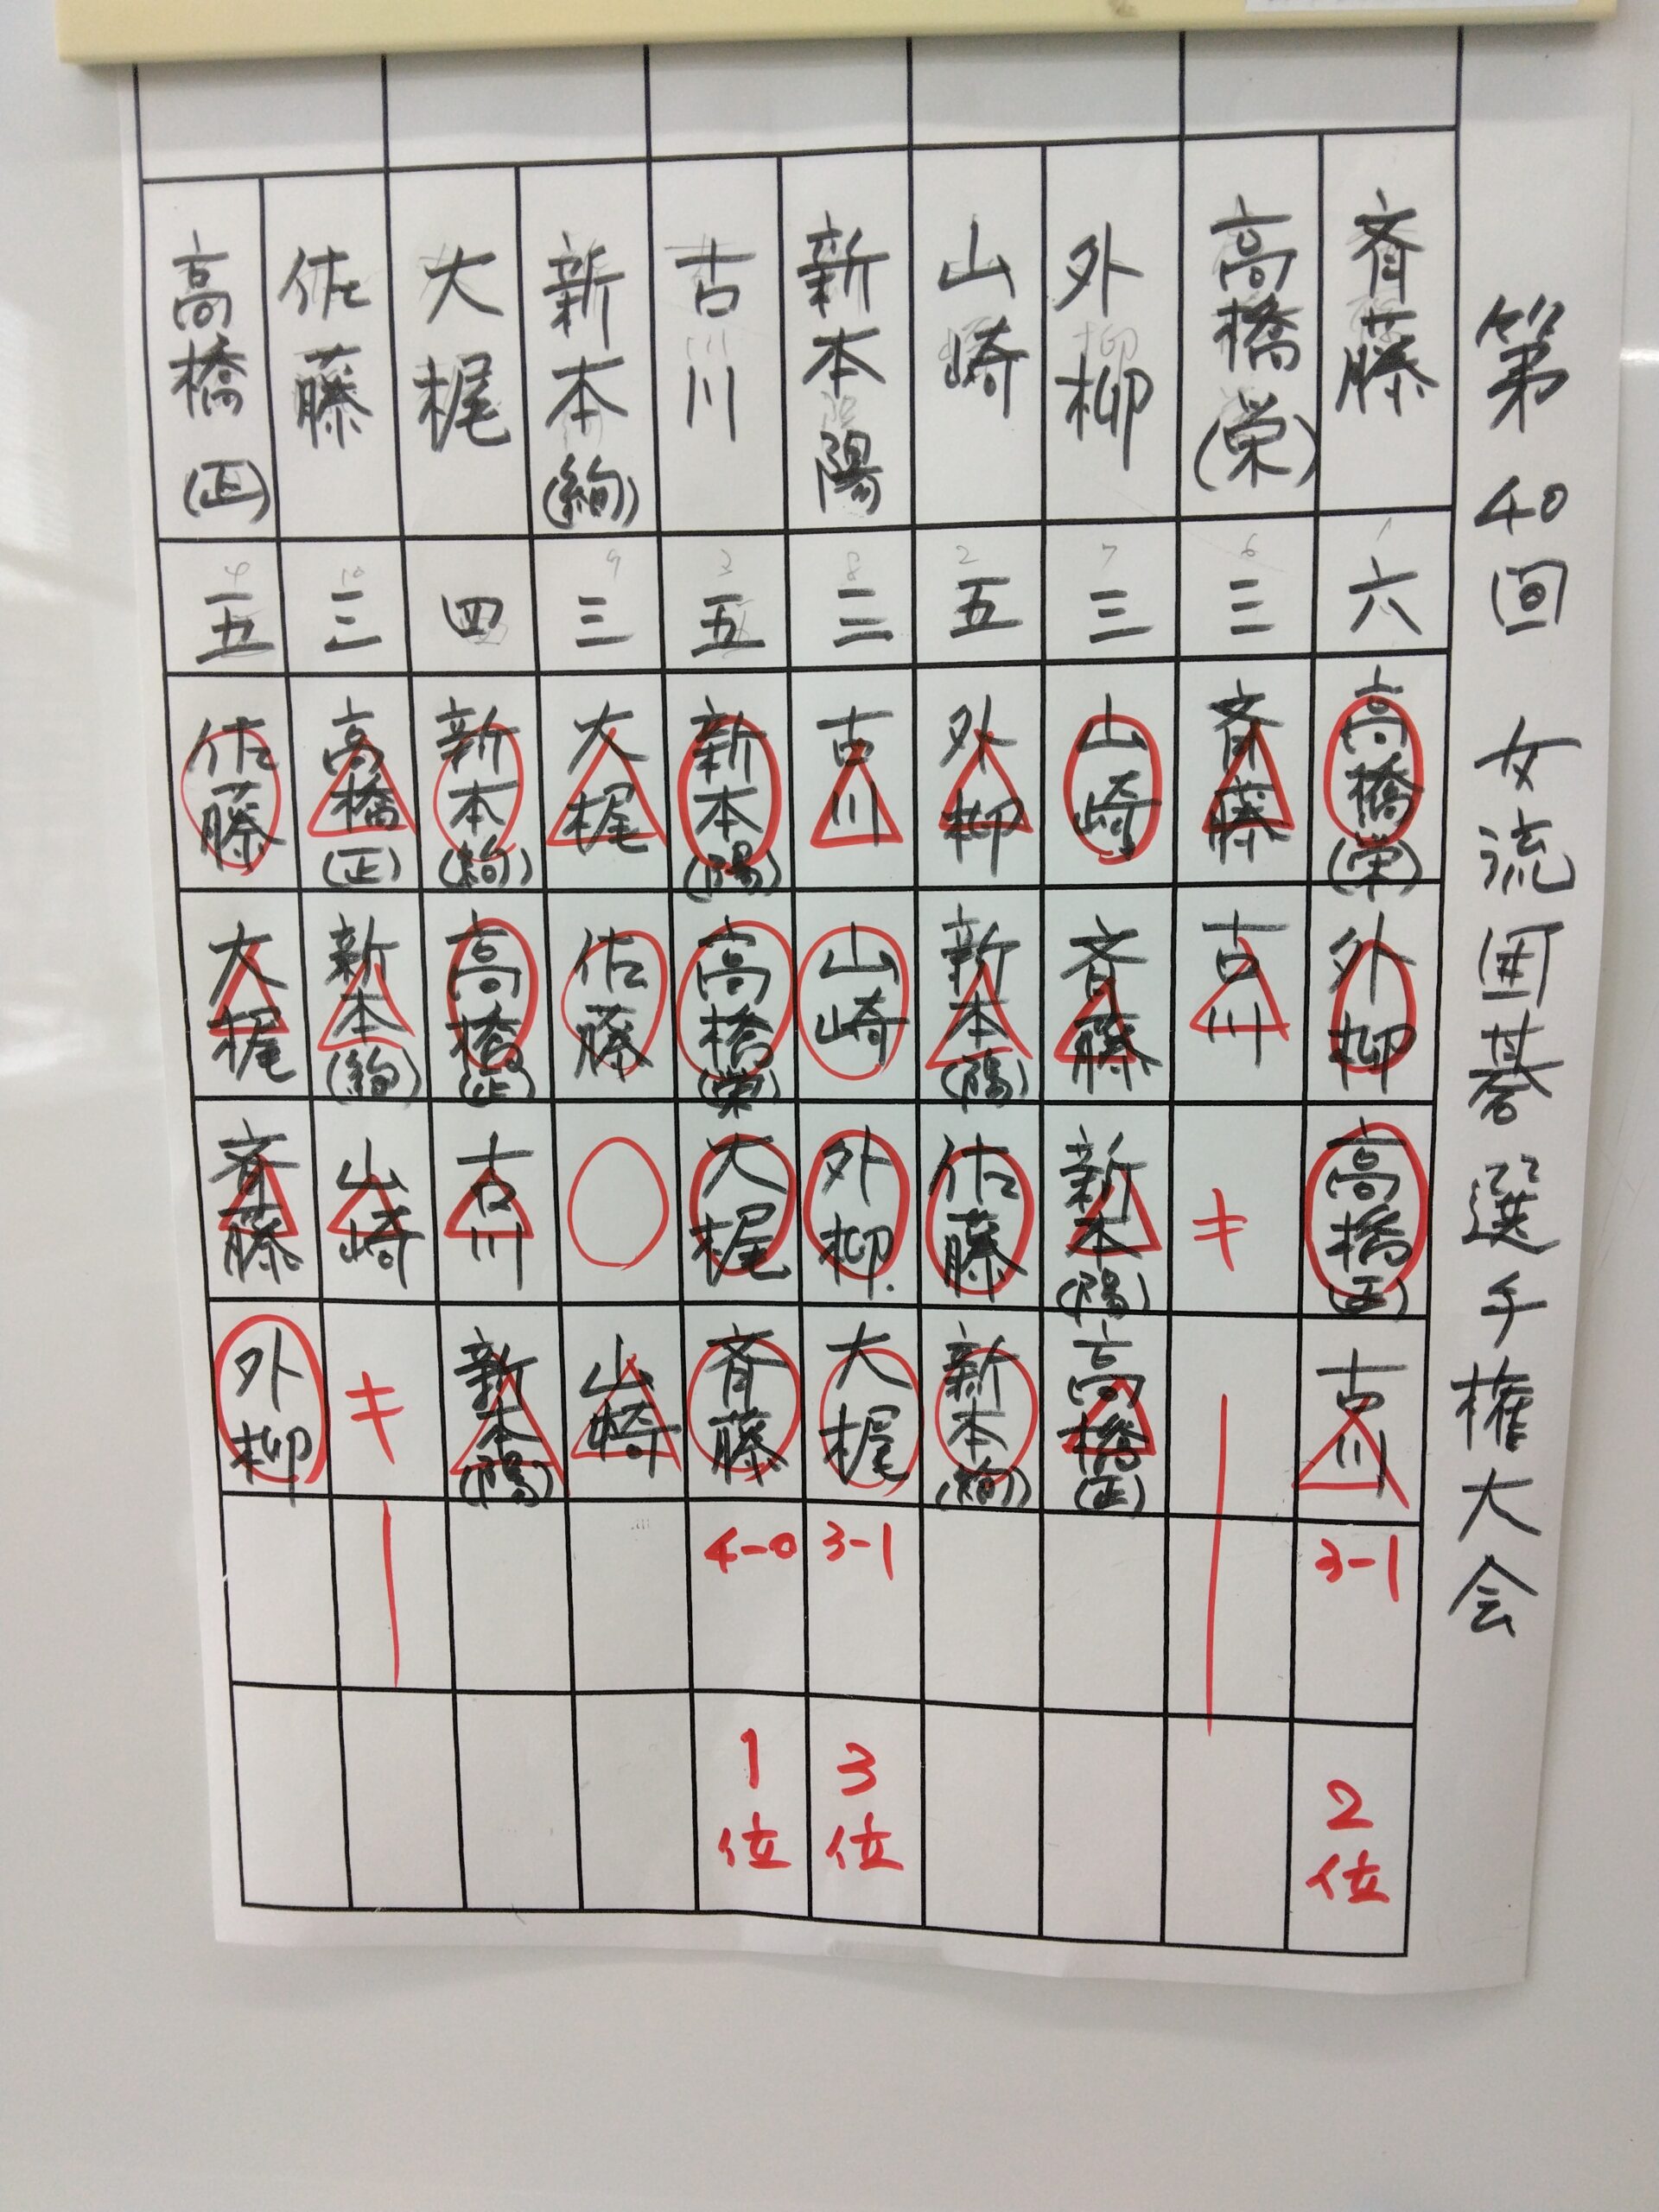 第40回 女流囲碁選手権大会
斉藤 六 高橋(栄) 外柳 高橋(正) 古川 3-1 2位
高橋(栄) 三 斉藤 古川 キ
外柳 三 山崎 斉藤 新本(陽) 高橋(正)
山崎 五 外柳 新本(陽) 佐藤 新本(絢)
新本陽 三 古川 山崎 外柳 大梶 3-1 3位
古川 五 新本(陽) 高橋(栄) 大梶 斉藤 4-0 1位
新本(絢) 三 大梶 佐藤 ○ 山崎
大梶 四 新本(絢) 高橋(正) 古川 新本(陽)
佐藤 三 高橋(正) 新本(絢) 山崎 キ
高橋(正) 五 佐藤 大梶 斉藤 外柳